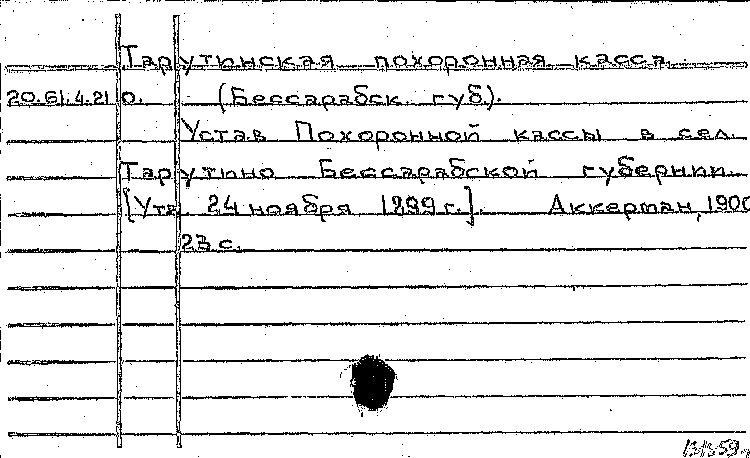 Тарутинская похоронная касса.
20.61.4.21 о. (Бессарабск. губ.).
Устав Похоронной кассы в сел.
Тарутино Бессарабской губернии.
[Утв. 24 ноября 1899 г.]. Аккерман, 1900
23 с.